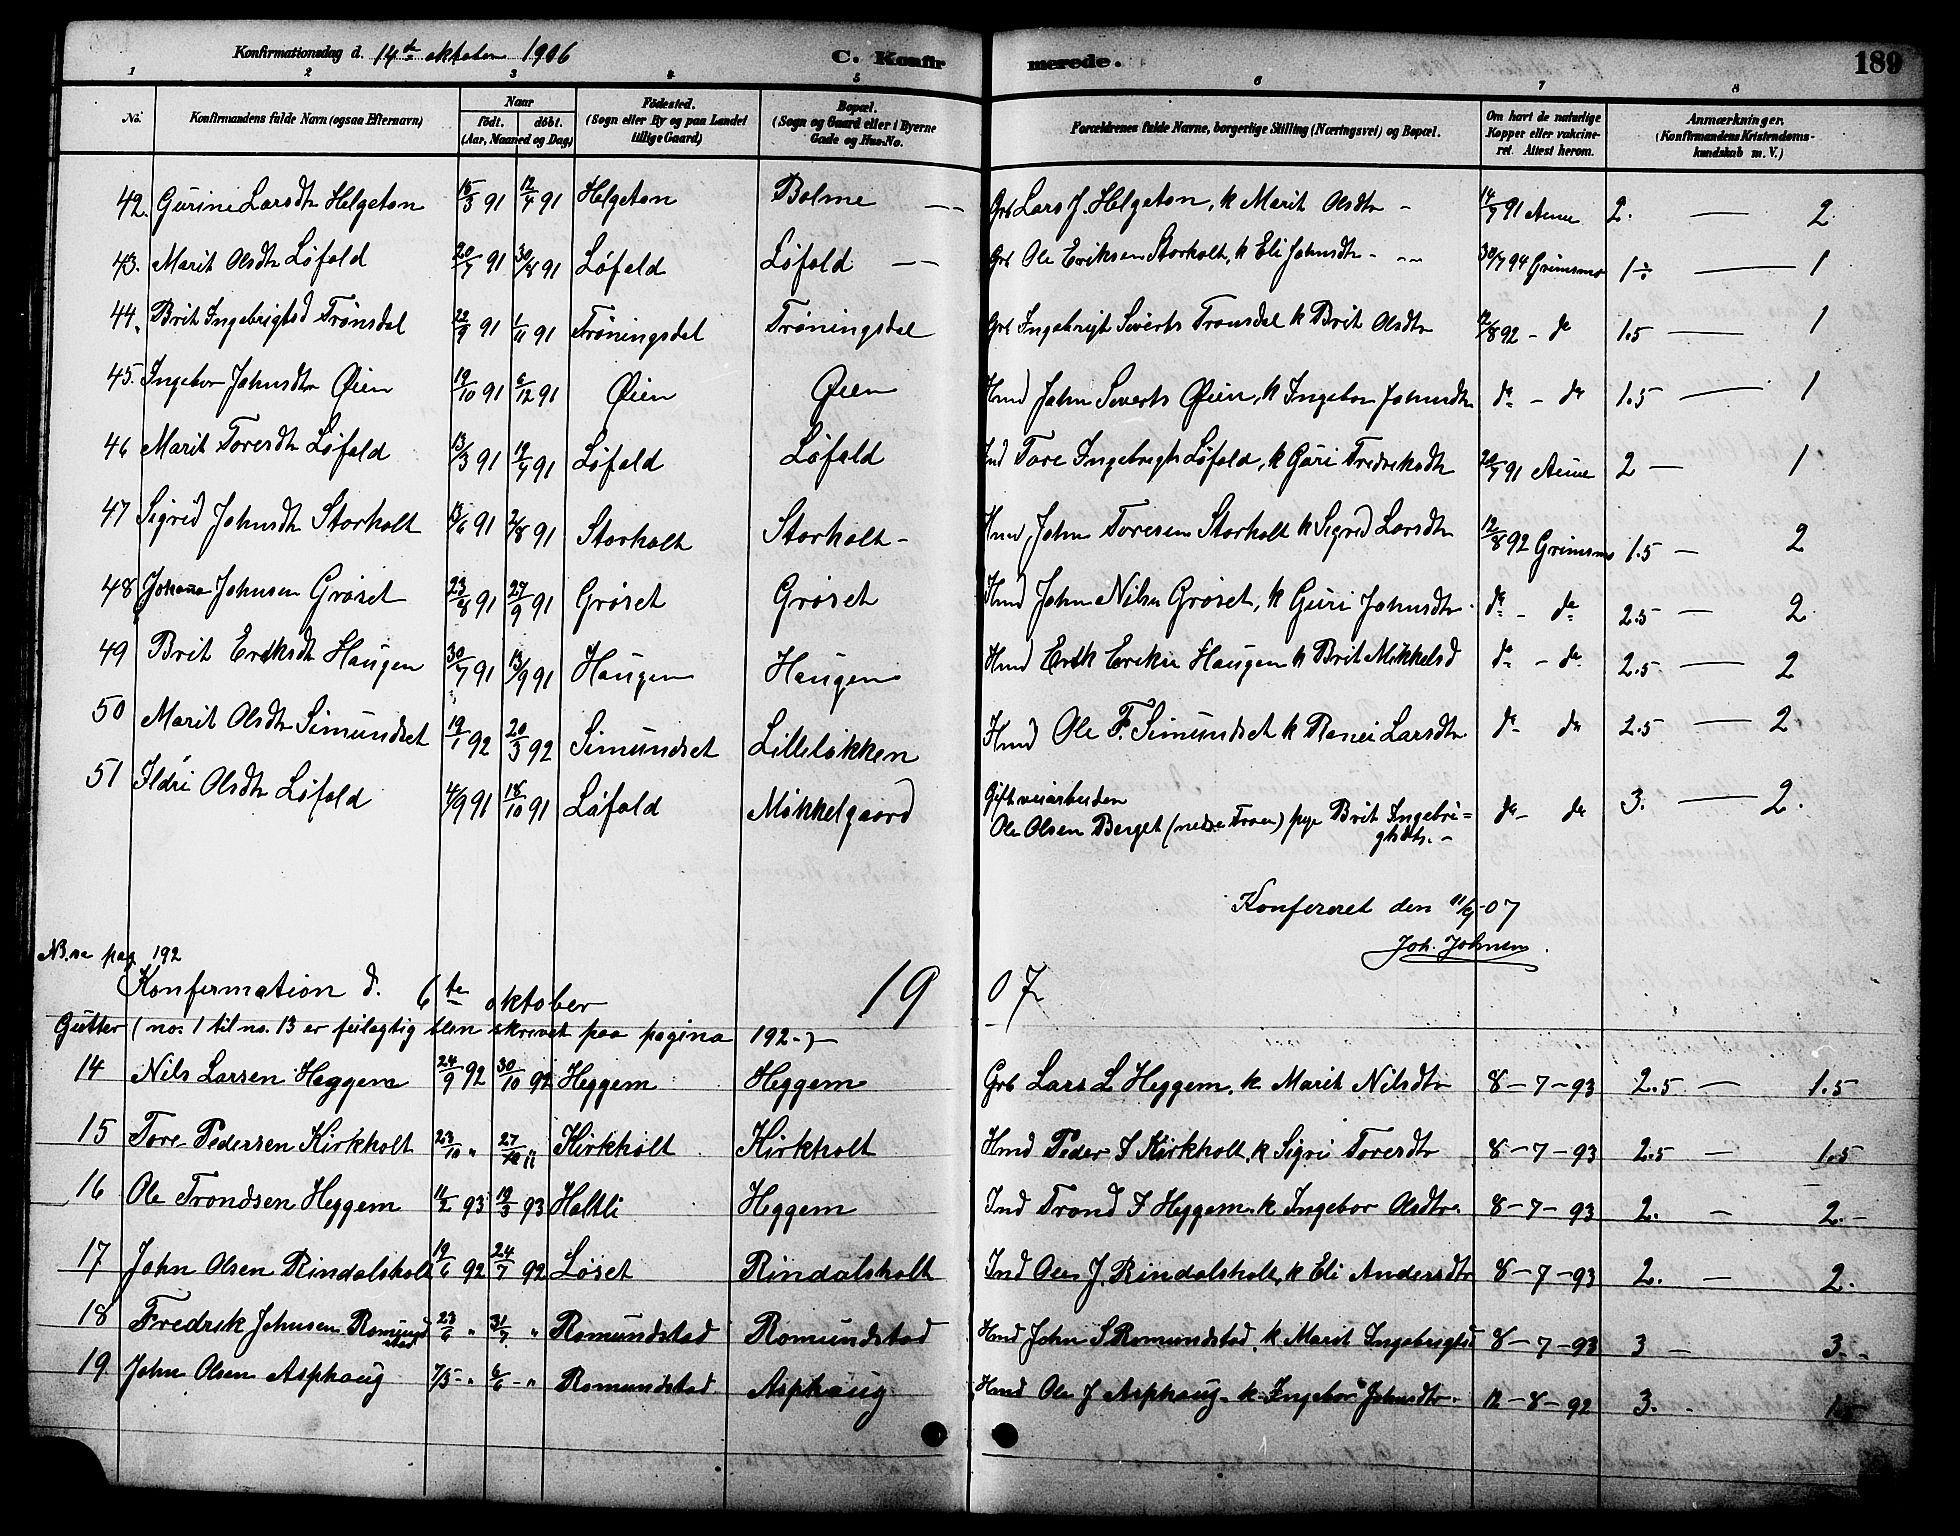 Konfirmationsdag d. 14de oktober 1906 C. Konfirmerede. 189
1 2 3 4 5 6 7 8
No. Konfirmandens fulde Navn (ogsaa Efternavn) Naar født. døbt. (Aar, Maaned og Dag) Fødested. (Sogn eller By og paa Landet tillige Gaard) Bopæl. (Sogn og Gaard eller i Byerne Gade og Hus-No. Forældrenes fulde Navne, borgerlige Stilling (Næringsvei) og Bopæl. Om havt de naturlige Kopper eller vakcineret. Attest herom. Anmærkninger. (Konfirmandens Kristendomskundskab m. V.)
42. Gurine Larsdtr Helgeton 15/3 91 12/4 91 Helgeton Bolme Grb Lars J. Helgeton, k Marit Olsdtr 14/7 91 Aune 2. — 2.
43. Marit Olsdtr Løfald 20/7 91 30/8 91 Løfald Løfald Grb Ole Eriksen Storholt, k Eli Johnsdtr 30/7 94 Grimsmo 1÷ — 1
44. Brit Ingebrigtsd Trønsdal 22/9 91 1/11 91 Trøningsdal Trøningsdal Grb Ingebrigt Siverts Trønsdal k Brit Olsdtr 12/8 92 - do 1.5 — 1
45. Ingebor Johnsdtr Øien 19/10 91 6/12 91 Øien Øien Hmd John Siverts Øien, k Ingebor Johnsdtr do - do 1.5 — 1
46 Marit Toresdtr Løfald 13/3 91 19/4 91 Løfald Løfald Ind Tore Ingebrigts Løfald, k Guri Fredriksdtr 20/7 91 Aune 2 — 1
47 Sigrid Johnsdtr Storholt 11/6 91 2/8 91 Storholt Storholt - Hmd John Toresen Storholt k Sigrid Larsdtr 12/8 92 Grimsmo 1.5 — 2
48 Johanna Johnsen Grøset 23/8 91 27/9 91 Grøset Grøset Hmd John Nilsen Grøset, k Guri Johnsdtr. do - do 2.5 — 2.
49 Brit Eriksdtr Haugen 30/7 91 13/9 91 Haugen Haugen Hmd Erik Eriksen Haugen k Brit Mikkelsd do - do 2.5 — 2
50 Marit Olsdtr Simundset 19/1 92 20/3 92 Simundset Lilleløkken Hmd Ole F. Simundset k Ranei Larsdtr do do 2.5 — 2.
51 Ildri Olsdtr Løfald 4/9 91 18/10 91 Løfald Mikkelgaard Gift veiarbeider
Ole Olsen Berget (nedre Troen) pige Brit Ingebri= do do 3. — 2.
gtsdtr. -
Konfereret den 11/9-07
Joh. Johnsen.
NB. se pag 192
Konfirmation d. 6te oktober 1907
Gutter (no. 1 til no. 13 er feilagtig blen skrevet paa pagina 192-)—
14 Nils Larsen Heggem 24/9 92 30/10 92 Heggem Heggem Grb Lars L Heggem, k Marit Nilsdtr 8-7-93 2.5 — 1.5
15 Tore Pedersen Kirkholt 23/10 " 27/10 " Kirkholt Kirkholt Hmd Peder I Kirkholt, k Sigri Toresdtr 8-7-93 2.5 — 1.5
16 Ole Trondsen Heggem 11/2 93 19/3 93 Holtli Heggem Ind Trond I Heggem. k Ingebor Olsdtr. 8-7-93 2. — 2.-
17 John Olsen Rindalsholt 19/6 92 24/7 92 Løset Rindalsholt Ind Ole J. Rindalsholt, k Eli Andersdtr 8-7-93 2. — 2.
18 Fredrik Johnsen Romundstad 23/6 " 31/7 " Romundstad Romundstad Hmd John S Romundstad, k Marit Ingebrigtsd 8-7-93 3 — 3.-
19 John Olsen Asphaug 7/5- " 6/6- " Romundstad Asphaug Hmd Ole J Asphaug. k Ingebor Johnsdtr. 12-8-92 3. - 1.5